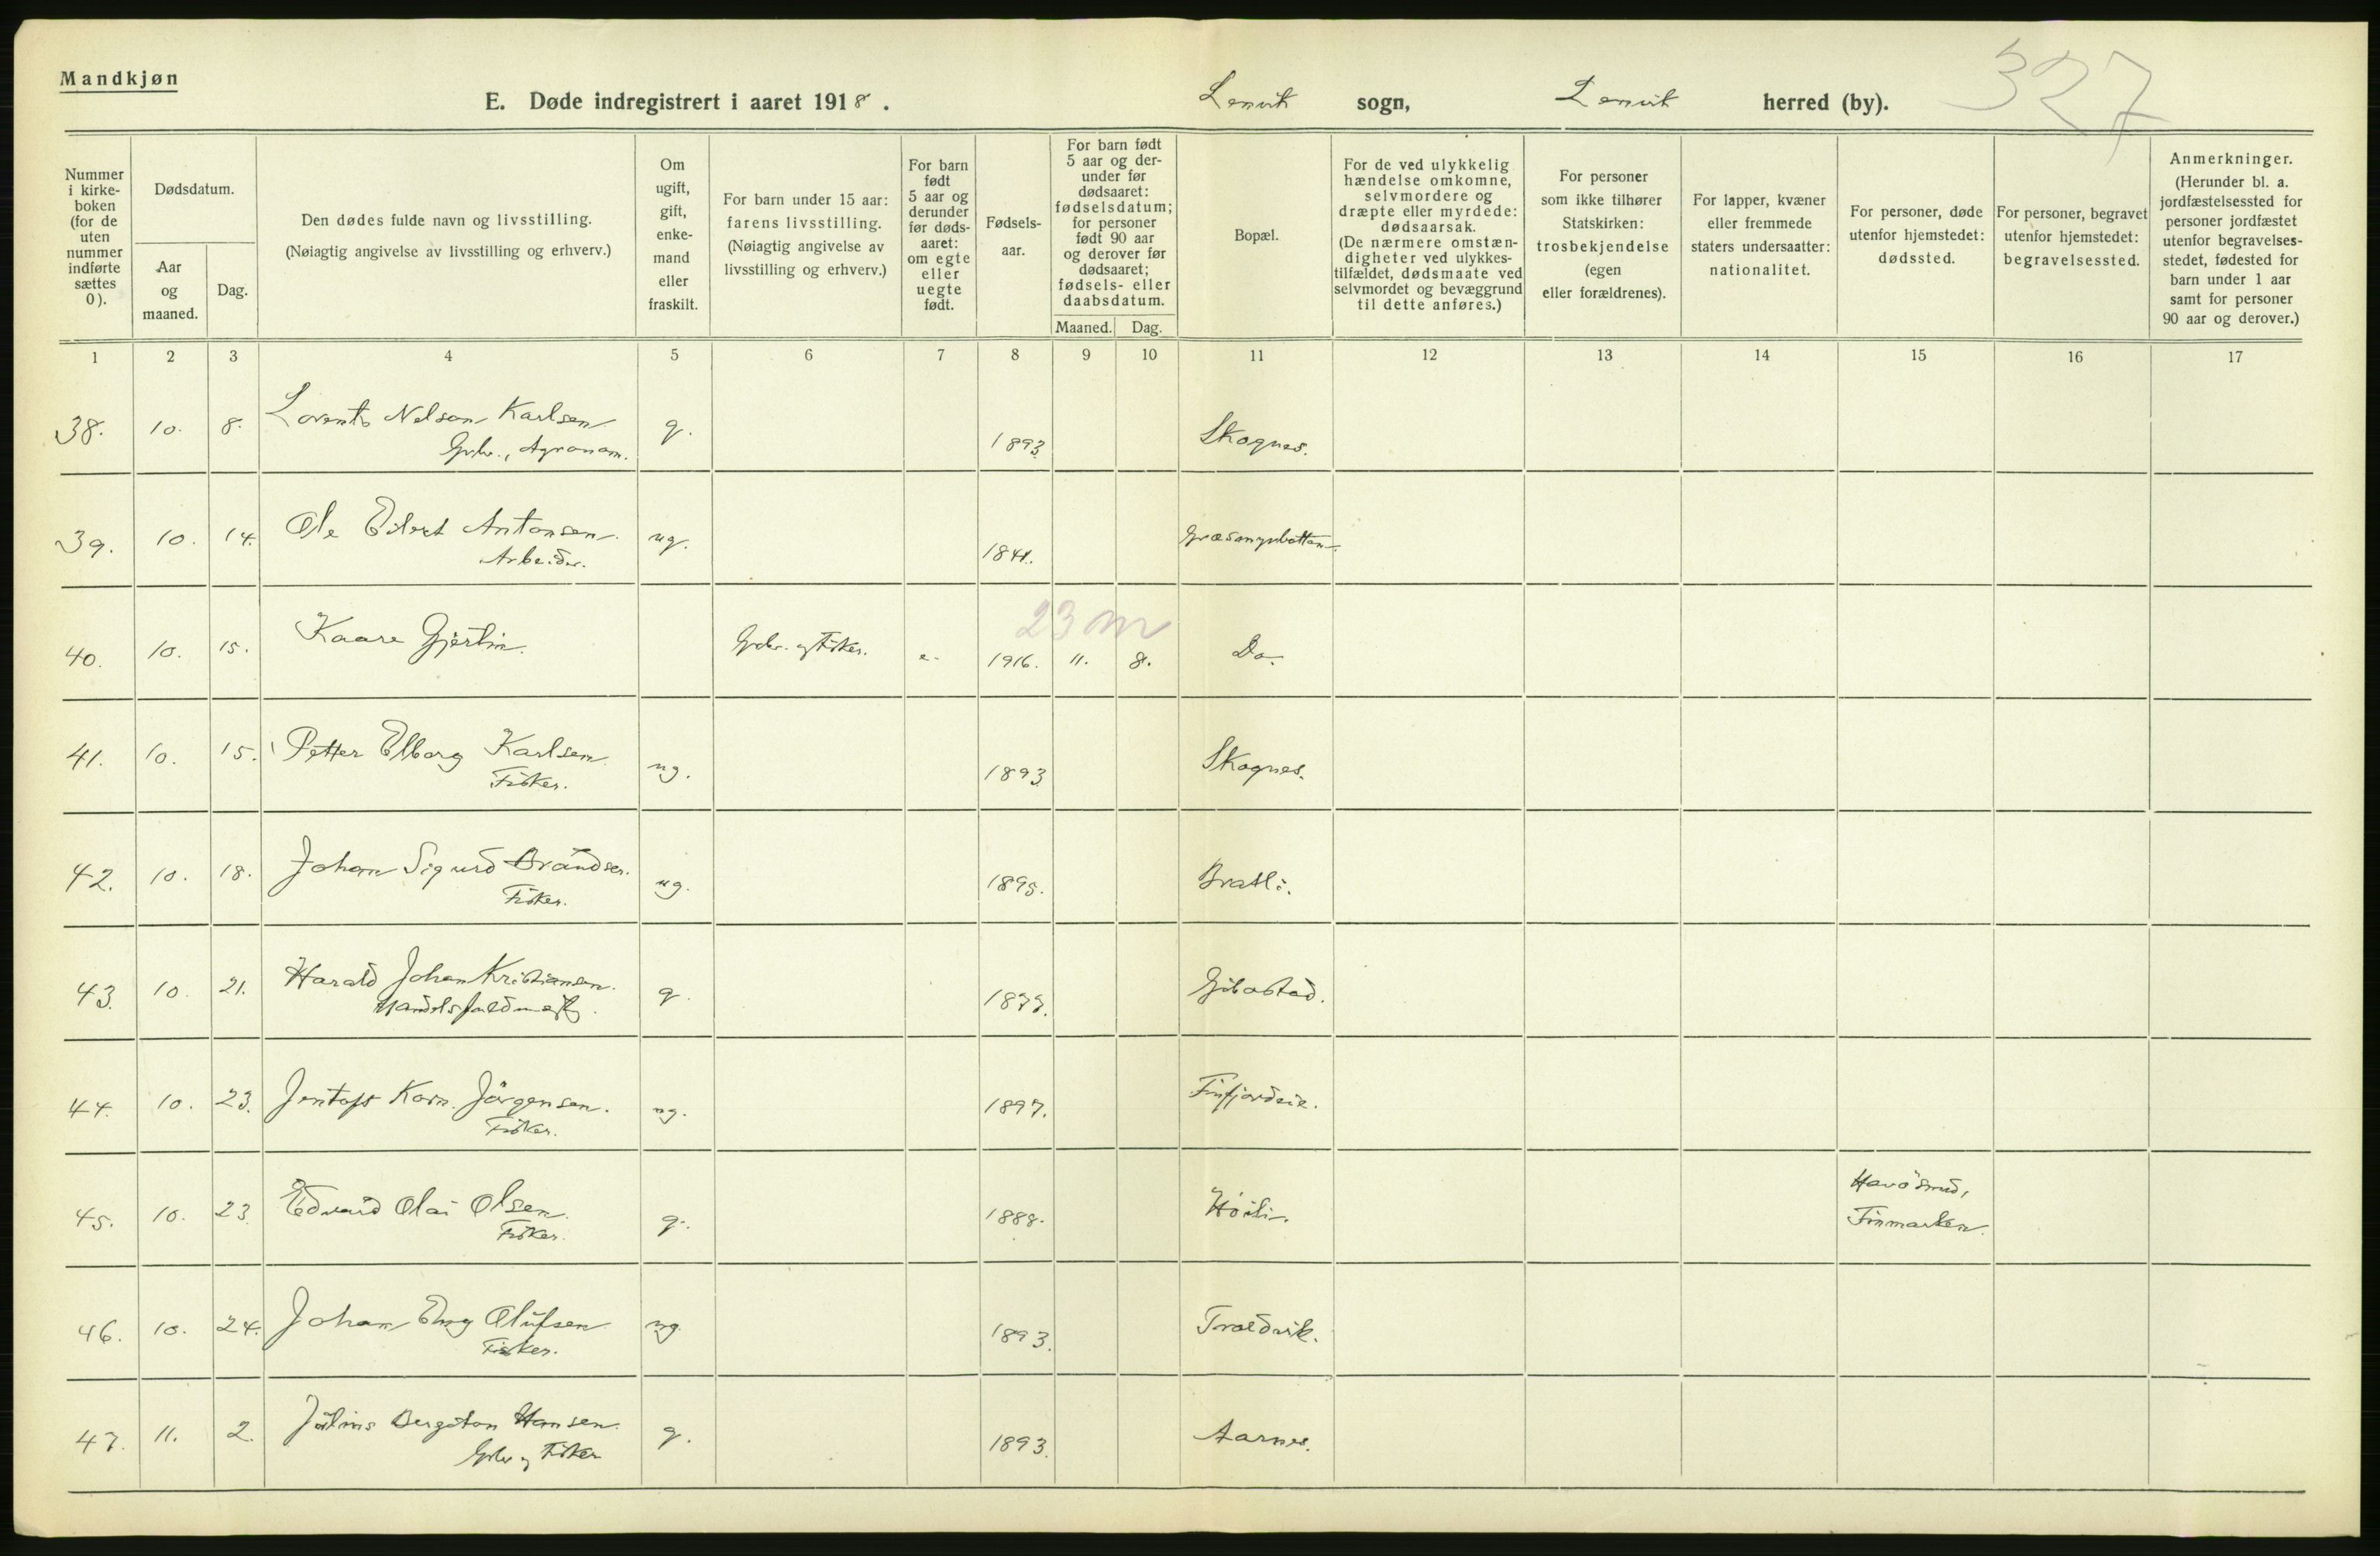 Mandkjøn
E. Døde indregistrert i aaret 1918. Lenvik sogn, Lenvik herred (by). 327
Nummer i kirke-boken (for de uten nummer indførte sættes 0).
Dødsdatum.
Aar og maaned.
Dag.
Den dødes fulde navn og livsstilling.
(Nøiagtig angivelse av livsstilling og erhverv.)
Om ugift, gift, enke-mand eller fraskilt.
For barn under 15 aar: farens livsstilling. (Nøiagtig angivelse av livsstilling og erhverv.)
For barn født 5 aar og derunder før døds-aaret: om egte eller uegte født.
Fødsels-aar.
For barn født 5 aar og der-under før dødsaaret: fødselsdatum; for personer født 90 aar og derover før dødsaaret; fødsels- eller daabsdatum.
Maaned. Dag.
Bopæl.
For de ved ulykkelig hændelse omkomne, selvmordere og dræpte eller myrdede: dødsaarsak. (De nærmere omstæn-digheter ved ulykkes-tilfældet, dødsmaate ved selvmordet og bevæggrund til dette anføres.)
For personer som ikke tilhører Statskirken: trosbekjendelse (egen eller forældrenes).
For lapper, kvæner eller fremmede staters undersaatter: nationalitet.
For personer, døde utenfor hjemstedet: dødssted.
For personer, begravet utenfor hjemstedet: begravelsessted.
Anmerkninger. (Herunder bl. a. jordfæstelsessted for personer jordfæstet utenfor begravelses-stedet, fødested for barn under 1 aar samt for personer 90 aar og derover.)
1 2 3 4 5 6 7 8 9 10 11 12 13 14 15 16 17
38. 10. 8. Lorents Nelson Karlsen g. 1893 Skognes.
Gbr., Agronom.
39. 10. 14. Ole Edvert Antonsen. ug. 1841.
Arbeider.
23 m
40. 10. 15. Kaare Gjertin. Gbr. og Fisker. e. 1916. 11. 8. Do.
41. 10. 15. Petter Elborg Karlsen ug. 1893 Skognes.
Fisker.
42. 10. 18. Johan Sigurd Brandsen. ug. 1895. Bratli.
Fisker.
43 10. 21. Harald Johan Kristiansen. g. Gibostad.
44. 10. 23. Jentoft Korn. Jörgensen. ug. 1897. Finfjordeie.
Fisker.
45. 10. 23. Edvard Olai Olsen g. 1888. Höili. Havösund, Finmarken.
Fisker.
46. 10. 24. Johan Olufsen ug. 1893. Troldvik.
Fisker.
47. 11. 2. Julius Bergeton Hansen. g. 1893. Aarnes.
Gbr og Fisker